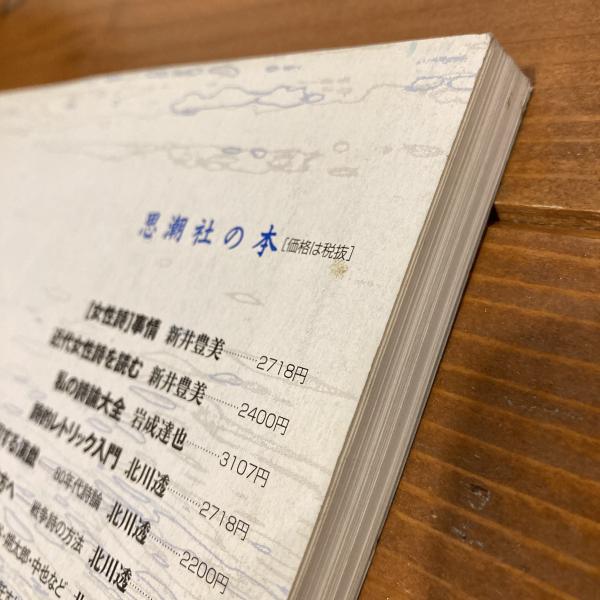 思潮社の本[価格は税抜]
[女性詩]事情 新井豊美………2718円
近代女性詩を読む 新井豊美………2400円
私の詩論大全 岩成達也………3107円
詩的レトリック入門 北川透………2718円
する演戯 80年代詩論 北川透………2200円
戦争詩の方法 北川透
太郎・中也など